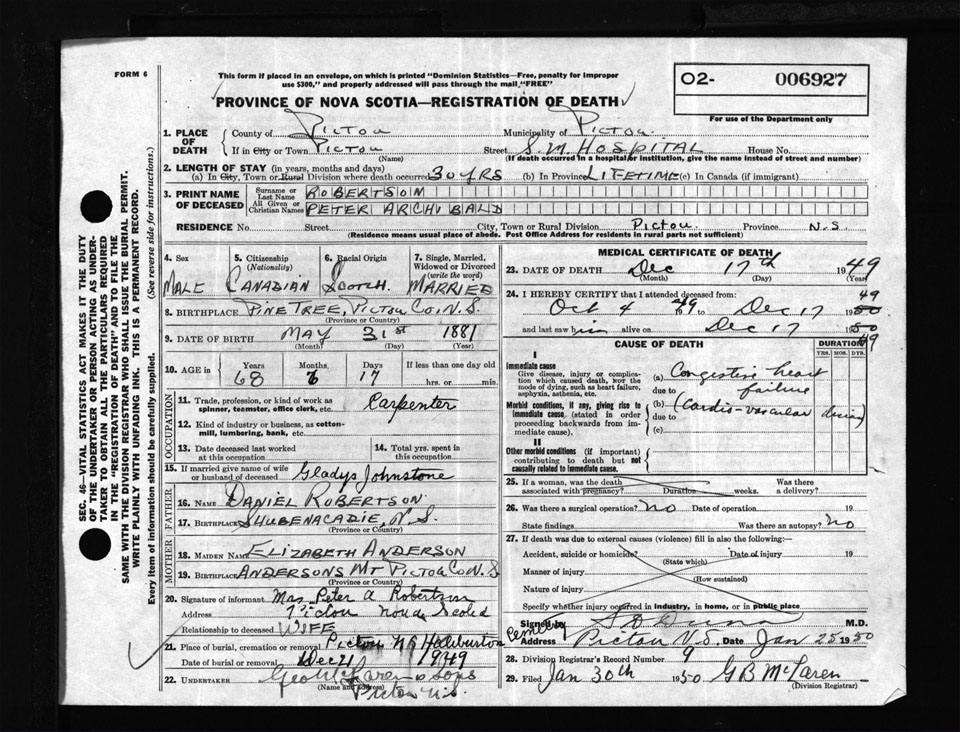 FORM 6
This form if placed in an envelope, on which is printed "Dominion Statistics—Free, penalty for improper
use $300," and properly addressed will pass through the mail "FREE"
PROVINCE OF NOVA SCOTIA—REGISTRATION OF DEATH
O2- 006927
For use of the Department only
1. PLACE OF DEATH
County of Pictou Municipality of Pictou
If in City or Town Pictou Street S.M. HOSPITAL House No.
(Name) (If death occurred in a hospital or institution, give the name instead of street and number)
2. LENGTH OF STAY (in years, months and days)
(a) In City, Town or Rural Division where death occurred 30 YRS (b) In Province LIFETIME (c) In Canada (if immigrant)
3. PRINT NAME OF DECEASED
Surname or Last Name ROBERTSON
All Given or Christian Names PETER ARCHIBALD
RESIDENCE No. Street City, Town or Rural Division Pictou Province N.S.
(Residence means usual place of abode. Post Office Address for residents in rural parts not sufficient)
4. Sex MALE
5. Citizenship (Nationality) CANADIAN
6. Racial Origin SCOTCH.
7. Single, Married, Widowed or Divorced (write the word) MARRIED
8. BIRTHPLACE PINE TREE, PICTOU CO. N.S.
(Province or Country)
9. DATE OF BIRTH MAY 31st 1881
(Month) (Day) (Year)
10. AGE in Years Months Days If less than one day old
68 6 17 hrs. or min.
OCCUPATION
11. Trade, profession, or kind of work as spinner, teamster, office clerk, etc. Carpenter
12. Kind of industry or business, as cotton-mill, lumbering, bank, etc.
13. Date deceased last worked at this occupation
14. Total yrs. spent in this occupation.
15. If married give name of wife or husband of deceased Gladys Johnstone
FATHER
16. Name DANIEL ROBERTSON
17. Birthplace SHUBENACADIE, N.S.
(Province or Country)
MOTHER
18. Maiden Name ELIZABETH ANDERSON
19. Birthplace ANDERSONS MT PICTOU CO N.S
(Province or Country)
20. Signature of informant Mrs Peter A Robertson
Address Pictou Nova Scotia
Relationship to deceased WIFE
21. Place of burial, cremation or removal Pictou Haliburton
Date of burial or removal Dec 21 1949
22. UNDERTAKER Geo McLaren & Sons
(Name and address)
Pictou N.S.
MEDICAL CERTIFICATE OF DEATH
23. DATE OF DEATH Dec 17th 1949
(Month) (Day) (Year)
24. I HEREBY CERTIFY that I attended deceased from:
Oct 4 1949 to Dec 17 1950 49
and last saw him alive on Dec 17 1950 49
CAUSE OF DEATH
DURATION
YRS. MOS. DYS.
I
Immediate cause
Give disease, injury or complication which caused death, NOT the mode of dying, such as heart failure, asphyxia, asthenia, etc.
(a) Congestive heart failure
due to
Morbid conditions, if any, giving rise to immediate cause, (stated in order proceeding backwards from immediate cause).
(b) (Cardio-vascular disease)
due to
(c)
II
Other morbid conditions (if important) contributing to death but not causally related to immediate cause.
25. If a woman, was the death associated with pregnancy? Duration weeks. Was there a delivery?
26. Was there a surgical operation? no Date of operation 19
State findings Was there an autopsy? no
27. If death was due to external causes (violence) fill in also the following:
Accident, suicide or homicide? Date of injury 19
(State which)
Manner of injury
(How sustained)
Nature of injury
Specify whether injury occurred in industry, in home, or in public place
Signed by Dunn M.D.
Cemetery
Address Pictou N.S. Date Jan 25 1950
28. Division Registrar's Record Number 9
29. Filed Jan 30th 1950 G B McLaren
(Division Registrar)
SEC. 46—VITAL STATISTICS ACT MAKES IT THE DUTY
OF THE UNDERTAKER OR PERSON ACTING AS UNDER-
TAKER TO OBTAIN ALL THE PARTICULARS REQUIRED
IN THE "REGISTRATION OF DEATH" AND TO FILE THE
SAME WITH THE DIVISION REGISTRAR WHO SHALL ISSUE THE BURIAL PERMIT.
WRITE PLAINLY WITH UNFADING INK. THIS IS A PERMANENT RECORD.
Every item of information should be carefully supplied. (See reverse side for instructions.)